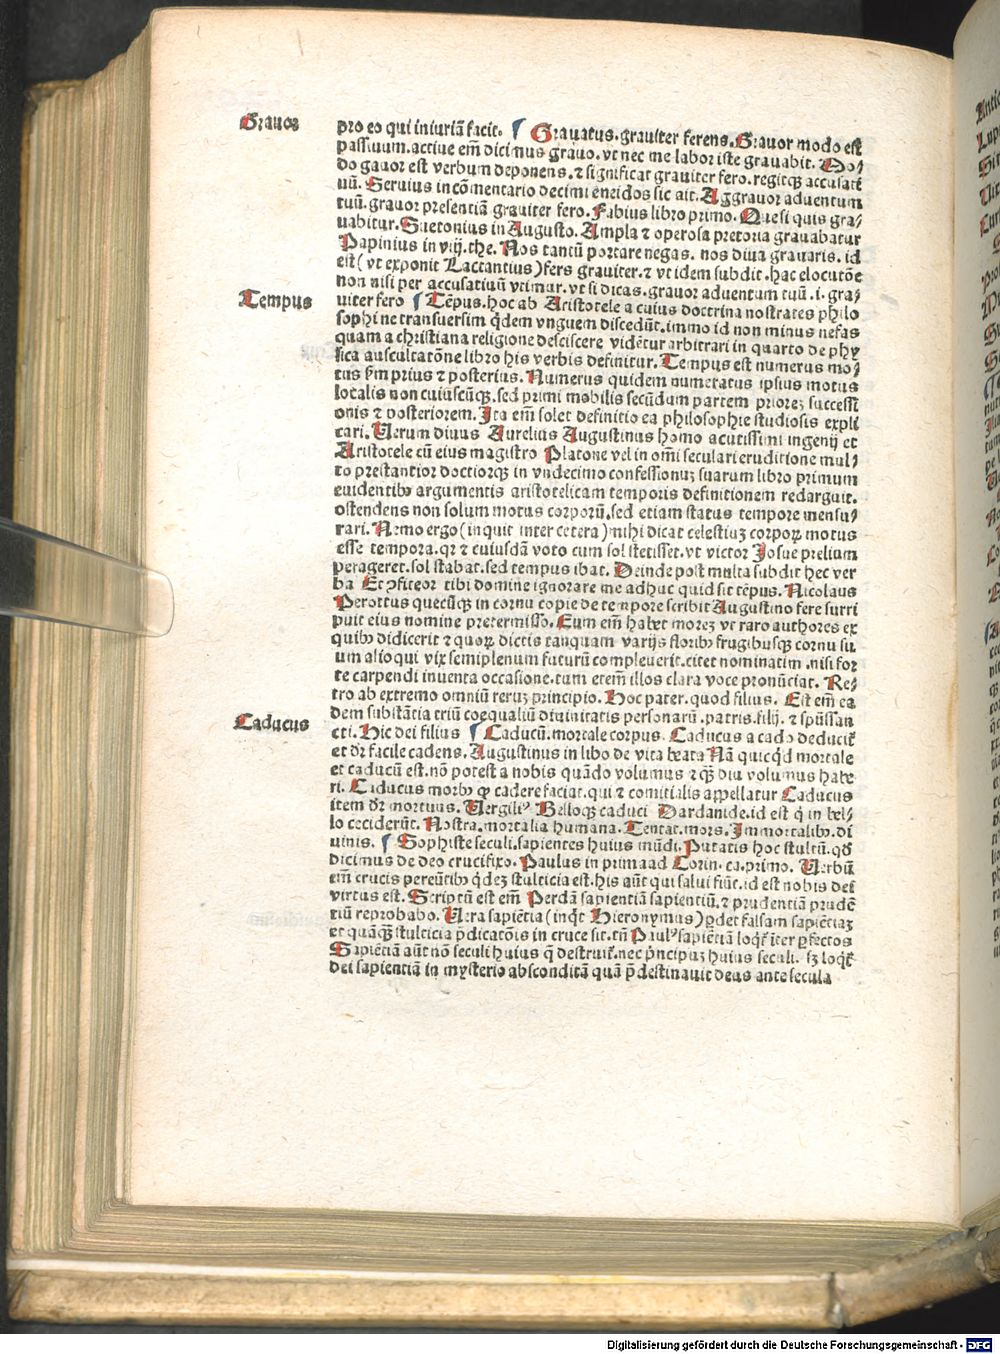 Grauor
pro eo qui iniuriã facit. ¶ Grauatus.grauiter ferens.Grauor modo est
passiuum.actiue em̃ dicimus grauo.vt nec me labor iste grauabit. Mo/
do gauor est verbum deponens.⁊ significat grauiter fero.regitqꝫ accusati
uũ. Seruius in cõmentario decimi eneidos sic ait. Aggrauor aduentum
tuũ.grauor presentiã grauiter fero. Fabius libro primo. Quesi quis gra/
uabitur.Suetonius in Augusto. Ampla ⁊ operosa pretoria grauabatur
Papinius in viij.the. Nos tantũ portare negas. nos diua grauaris. id
est( vt exponit Lactantius)fers grauiter.⁊ vt idem subdit.hac elocutõe
non nisi per accusatiuũ vtimur.vt si dicas.grauor aduentum tuũ.i.gra/
Tempus
uiter fero ¶ Tẽpus.hoc ab Aristotele a cuius doctrina nostrates philo
sophi ne transuersim q̃dem vnguem discedũt.immo id non minus nefas
quam a christiana religione desciscere vidẽtur arbitrari in quarto de phy
sica auscultatõne libro his verbis definitur. Tempus est numerus mo/
tus s̃m prius ⁊ posterius. Numerus quidem numeratus ipsius motus
localis non cuiuscũqꝫ.sed primi mobilis secũdum partem prioreꝫ successi
onis ⁊ posteriorem. Ita em̃ solet definitio ea philosophie studiosis expli
cari. Uerum diuus Aurelius Augustinus homo acutissimi ingenij et
Aristotele cũ eius magistro Platone vel in om̃i seculari eruditione mul/
to prestantior doctiorqꝫ in vndecimo confessionuꝫ suarum libro primum
euidentibꝰ argumentis aristotelicam temporis definitionem redarguit.
ostendens non solum motus corporũ.sed etiam status tempore mensu/
rari. Nemo ergo(inquit inter cetera)mihi dicat celestiuꝫ corpoꝝ motus
esse tempora.qr ⁊ cuiusdã voto cum sol stetisset.vt victor Iosue prelium
perageret.sol stabat.sed tempus ibat. Deinde post multa subdit hec ver
ba Et ↄfiteor tibi domine ignorare me adhuc quid sit tẽpus. Nicolaus
Perottus quecũqꝫ in cornu copie de tempore scribit Augustino fere surri
puit eius nomine pretermisso. Eum em̃ habet moreꝫ vt raro authores ex
quibꝰ didicerit ⁊ quoꝝ dictis tanquam varijs floribꝰ frugibusqꝫ cornu su
um alioqui vix semiplenum futurũ compleuerit.citet nominatim.nisi for
te carpendi inuenta occasione.tum etem̃ illos clara voce pronũciat. Re/
tro ab extremo omniũ reruꝫ principio. Hoc pater.quod filius. Est em̃ ea
dem substãtia triũ coequaliũ diuinitatis personarũ.patris.filij.⁊ sp̃ussan
Caducus
cti. Hic dei filius ¶ Caducũ.mortale corpus. Caducus a cado deducit̃
et dr̃ facile cadens. Augustinus in libo de vita beata Nã quicq̃d mortale
et caducũ est.nõ potest a nobis quãdo volumus ⁊ q̃ꝫ diu volumus habe
ri. Caducus morbꝰ ꝙ cadere faciat.qui ⁊ comitialis appellatur Caducus
item dr̃ mortuus. Uergiliꝰ Belloqꝫ caduci Dardanide.id est q̃ in bel/
lo ceciderũt. Nostra.mortalia humana. Tentat.mors. Immortalibꝰ.di
uinis. ¶ Sophiste seculi.sapientes huius mũdi. Putatis hoc stultũ.qð
dicimus de deo crucifixo. Paulus in prima ad Corin.ca.primo. Uerbũ
em̃ crucis pereũtibꝰ q̃deꝫ stulticia est.his aũt qui salui fiũt.id est nobis dei
virtus est. Scriptũ est em̃ Perdã sapientiã sapientiũ.⁊ prudentiã prudẽ
tiũ reprobabo. Uera sapiẽtia (inq̃t Hieronymus) ꝑdet falsam sapiẽtiaꝫ
et quãqꝫ stulticia p̃dicatõis in cruce sit.tñ Paulꝰ sapiẽtiã loq̃t̃ iter ꝑfectos
Sapiẽtiã aũt nõ seculi huius q̃ destruit̃.nec p̃ncipuꝫ huius seculi. sꝫ loq̃t̃
dei sapientiã in mysterio absconditã quã p̃destinauit deus ante secula
Digitalisierung gefördert durch die Deutsche Forschungsgemeinschaft - DFG